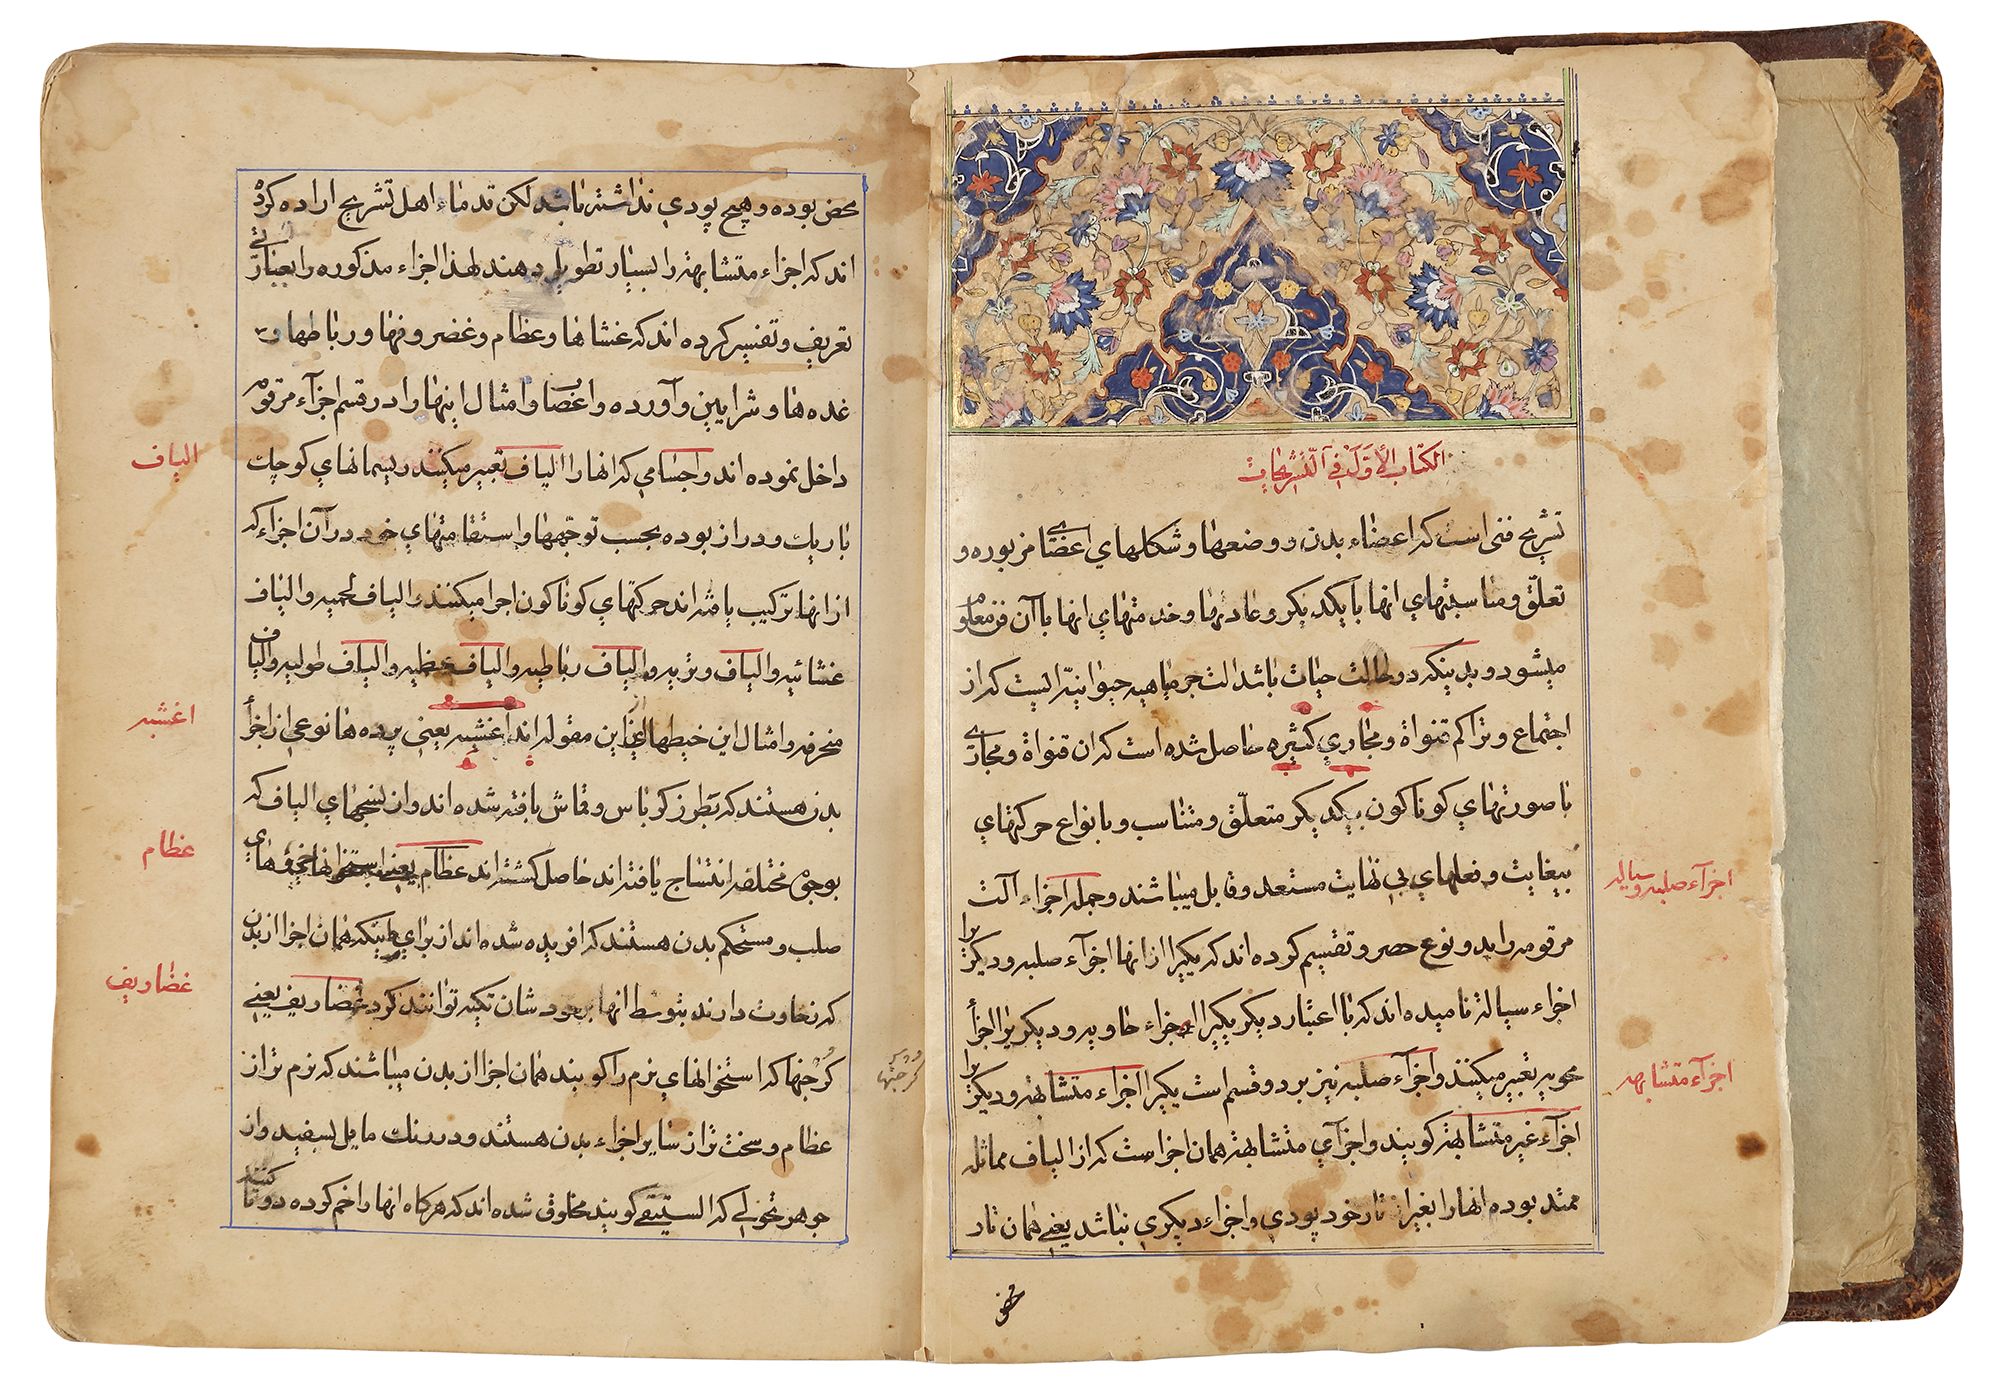 الکتاب الأوّل في التشریحات
تشریح فنی است که اعضاء بدن و وضعها و شکلهای اعضای مزبوره و
تعلّق و مناسبتهای انها با یکدیکر و عادتها و خدمتهای انها با آن فن معلوم
میشود و بدینکه در حالت حیات باشد الت جرمیاهیه حیوانیه الیست که از
اجتماع و تراکم قنواة و مجاری کثیره حاصل شده است که ان قنواة و مجاری
با صورتهای کوناکون بیکدیکر متعلّق و متناسب و با نواع حرکتهای
بیغایت و فعلهای بی نهایت مستعد و قابل میباشند و جمله اجزاء آلت
مرقومه را بدو نوع حصر و تقسیم کرده اند که یکیرا از انها اجزآء صلبه و دیکریرا
اجزاء سیاله نامیده اند که با اعتبار دیکر یکیرا اجزاء حاویه و دیکریرا اجزأ
محویه تعبیر میکنند و اجزآء صلبه نیز بر دو قسم است یکیرا اجزاء متشابهه و دیکریرا
اجزآء غیر متشابهه کویند و اجزآی متشابهه همان اجزاست که از الیاف مماثله
ممتد بوده انها را بغیر از تار خود پودی و اجزاء دیکری نباشد یعنی همان تار
اجزآء صلبه و سیاله
اجزآء متشابهه
محض
محض بوده و هیچ پودی نداشته باشد لکن قدماء اهل تشریح اراده کرده
اند که اجزاء متشابهه را بسیار تطویل دهند لهذا اجزاء مذکوره را بعبارتی
تعریف و تفسیر کرده اند که غشاها و عظام و غضروفها و رباطها و
غده ها و شرایین و آورده و اعصاب و امثال اینها را در قسم اجزآء مرقوم
داخل نموده اند و اجسامی که انها را الیاف تعبیر میکنند ریسمانهای کوچك
باریك و دراز بوده بحسب توجّهها و استقامتهای خود در آن اجزاء که
از انها ترکیب یافته اند حرکتهای کوناکون اجرا میکنند و الیاف لحمیه و الیاف
غشائیه و الیاف وتریه و الیاف رباطیه و الیاف عظمیه و الیاف طولیه و الیاف
منحرفه و امثال این خیطها از این مقوله اند اغشیه یعنی پرده ها نوعی از اجزأ
بدن هستند که بطرز کرباس و قماش بافته شده اند و ان نسجهای الیاف که
بوجوه مختلفه انتساج یافته اند حاصل کشته اند عظام یعنی استخوانها جزؤهای
صلب و مستحکم بدن هستند که افریده شده اند از برای اینکه همان اجزا از بدن
که رخاوت دارند بتوسط انها بر خود شان تکیه توانند کرد غضاریف یعنی
کرجنها که استخوانهای نرم را کویند همان اجزا از بدن میباشند که نرم تر از
عظام و سخت تر از سایر اجزاء بدن هستند و در رنك مایل بسفید و از
جوهر تحولی که الستیقی کویند مخلوق شده اند که هرکاه انها را خم کرده دو تا کنند
الیاف
اغشیه
عظام
غضاریف